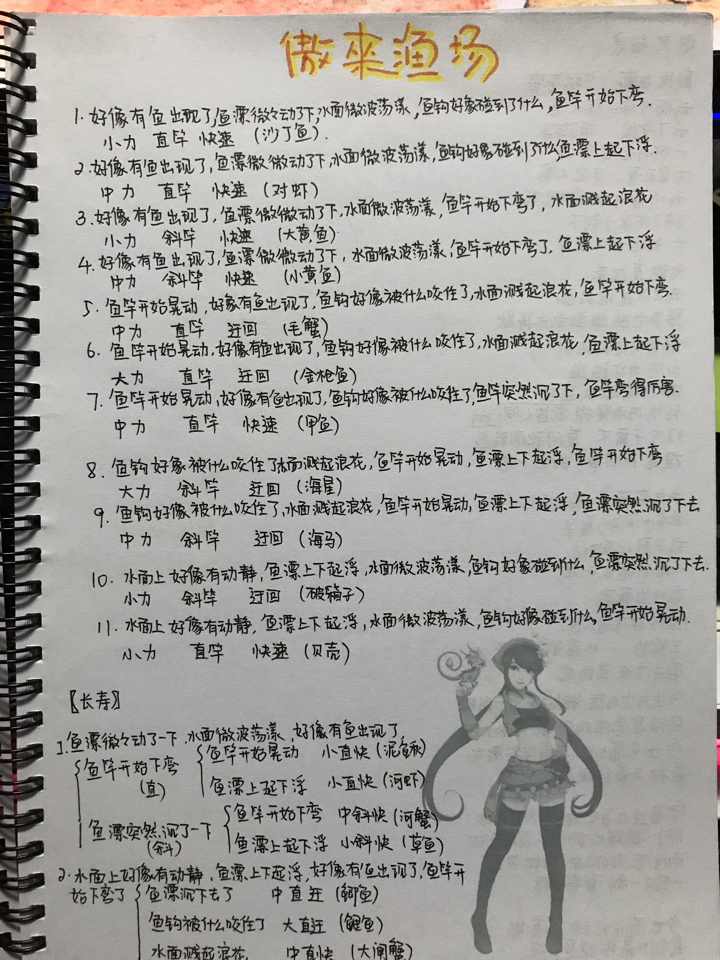 傲来渔场
1. 好像有鱼出现了,鱼漂微微动了下,水面微波荡漾,鱼钩好像碰到了什么,鱼竿开始下弯.
小力 直竿 快速 (沙丁鱼).
2. 好像有鱼出现了,鱼漂微微动了下,水面微波荡漾,鱼钩好像碰到了什么,鱼漂上起下浮.
中力 直竿 快速 (对虾)
3. 好像有鱼出现了,鱼漂微微动了下,水面微波荡漾,鱼竿开始下弯了,水面溅起浪花
小力 斜竿 快速 (大黄鱼)
4. 好像有鱼出现了,鱼漂微微动了下,水面微波荡漾,鱼竿开始下弯了.鱼漂上起下浮
中力 斜竿 快速 (小黄鱼)
5. 鱼竿开始晃动,好像有鱼出现了,鱼钩好像被什么咬住了,水面溅起浪花,鱼竿开始下弯.
中力 直竿 迂回 (毛蟹)
6. 鱼竿开始晃动,好像有鱼出现了,鱼钩好像被什么咬住了,水面溅起浪花,鱼漂上起下浮
大力 直竿 迂回 (金枪鱼)
7. 鱼竿开始晃动,好像有鱼出现了,鱼钩好像被什么咬住了,鱼竿突然沉了下,鱼竿弯得厉害.
中力 直竿 快速 (甲鱼)
8. 鱼钩好像被什么咬住了水面溅起浪花,鱼竿开始晃动,鱼漂上下起浮,鱼竿开始下弯
大力 斜竿 迂回 (海星)
9. 鱼钩好像被什么咬住了,水面溅起浪花,鱼竿开始晃动,鱼漂上下起浮,鱼漂突然沉了下去
中力 斜竿 迂回 (海马)
10. 水面上好像有动静,鱼漂上下起浮,水面微波荡漾,鱼钩好像碰到什么,鱼漂突然沉了下去.
小力 斜竿 迂回 (破箱子)
11. 水面上好像有动静,鱼漂上下起浮,水面微波荡漾,鱼钩好像碰到什么,鱼竿开始晃动.
小力 直竿 快速 (贝壳)
〖长寿〗
1. 鱼漂微微动了一下.水面微波荡漾,好像有鱼出现了,
鱼竿开始下弯 (直) 鱼竿开始晃动 小直快 (泥鳅)
鱼漂上起下浮 小直快 (河虾)
鱼漂突然沉了一下 (斜) 鱼竿开始下弯 中斜快 (河蟹)
鱼漂上起下浮 小斜快 (草鱼)
2. 水面上好像有动静,鱼漂上下起浮,好像有鱼出现了,鱼竿开
始下弯了 鱼漂沉下去了 中直迂 (鲫鱼)
鱼钩被什么咬住了 大直迂 (鲤鱼)
水面溅起浪花 中直快 (大闸蟹)